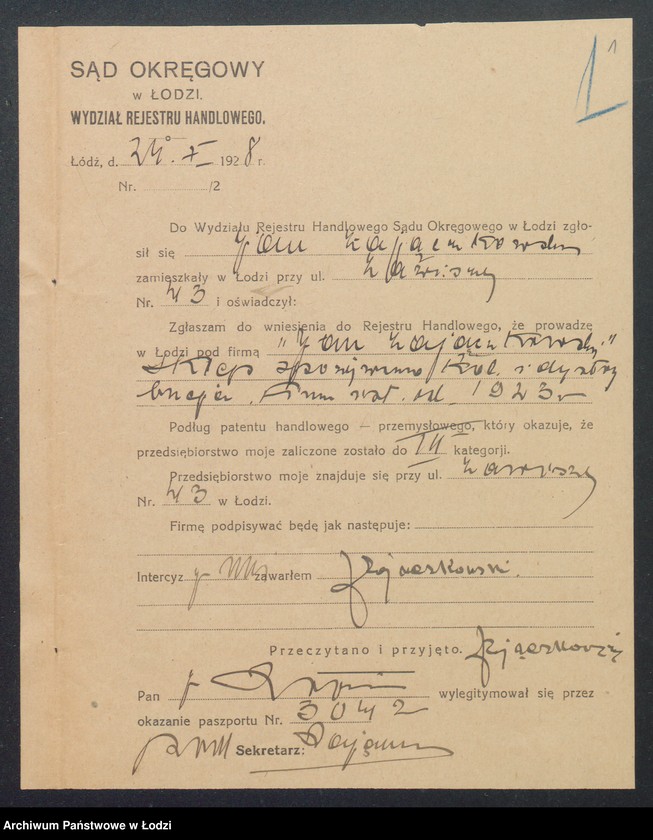 1
1
SĄD OKRĘGOWY
w ŁODZI.
WYDZIAŁ REJESTRU HANDLOWEGO.
Łódź, d. 24. X 1928 r.
Nr. /2
Do Wydziału Rejestru Handlowego Sądu Okręgowego w Łodzi zgło-
sił się Jan Zajączkowski
zamieszkały w Łodzi przy ul. Zawiszy
Nr. 43 i oświadczył:
Zgłaszam do wniesienia do Rejestru Handlowego, że prowadzę
w Łodzi pod firmą "Jan Zajączkowski"
sklep spożywczo kol. i dystry
bucja. Firma istn. od. 1923
Podług patentu handlowego — przemysłowego, który okazuje, że
przedsiębiorstwo moje zaliczone zostało do III kategorji.
Przedsiębiorstwo moje znajduje się przy ul. Zawiszy
Nr. 43 w Łodzi.
Firmę podpisywać będę jak następuje:
Intercyzy nie zawarłem JZajączkowski.
Przeczytano i przyjęto. JZajączkowski
Pan wylegitymował się przez
okazanie paszportu Nr. 3042
Sekretarz:
Archiwum Państwowe w Łodzi